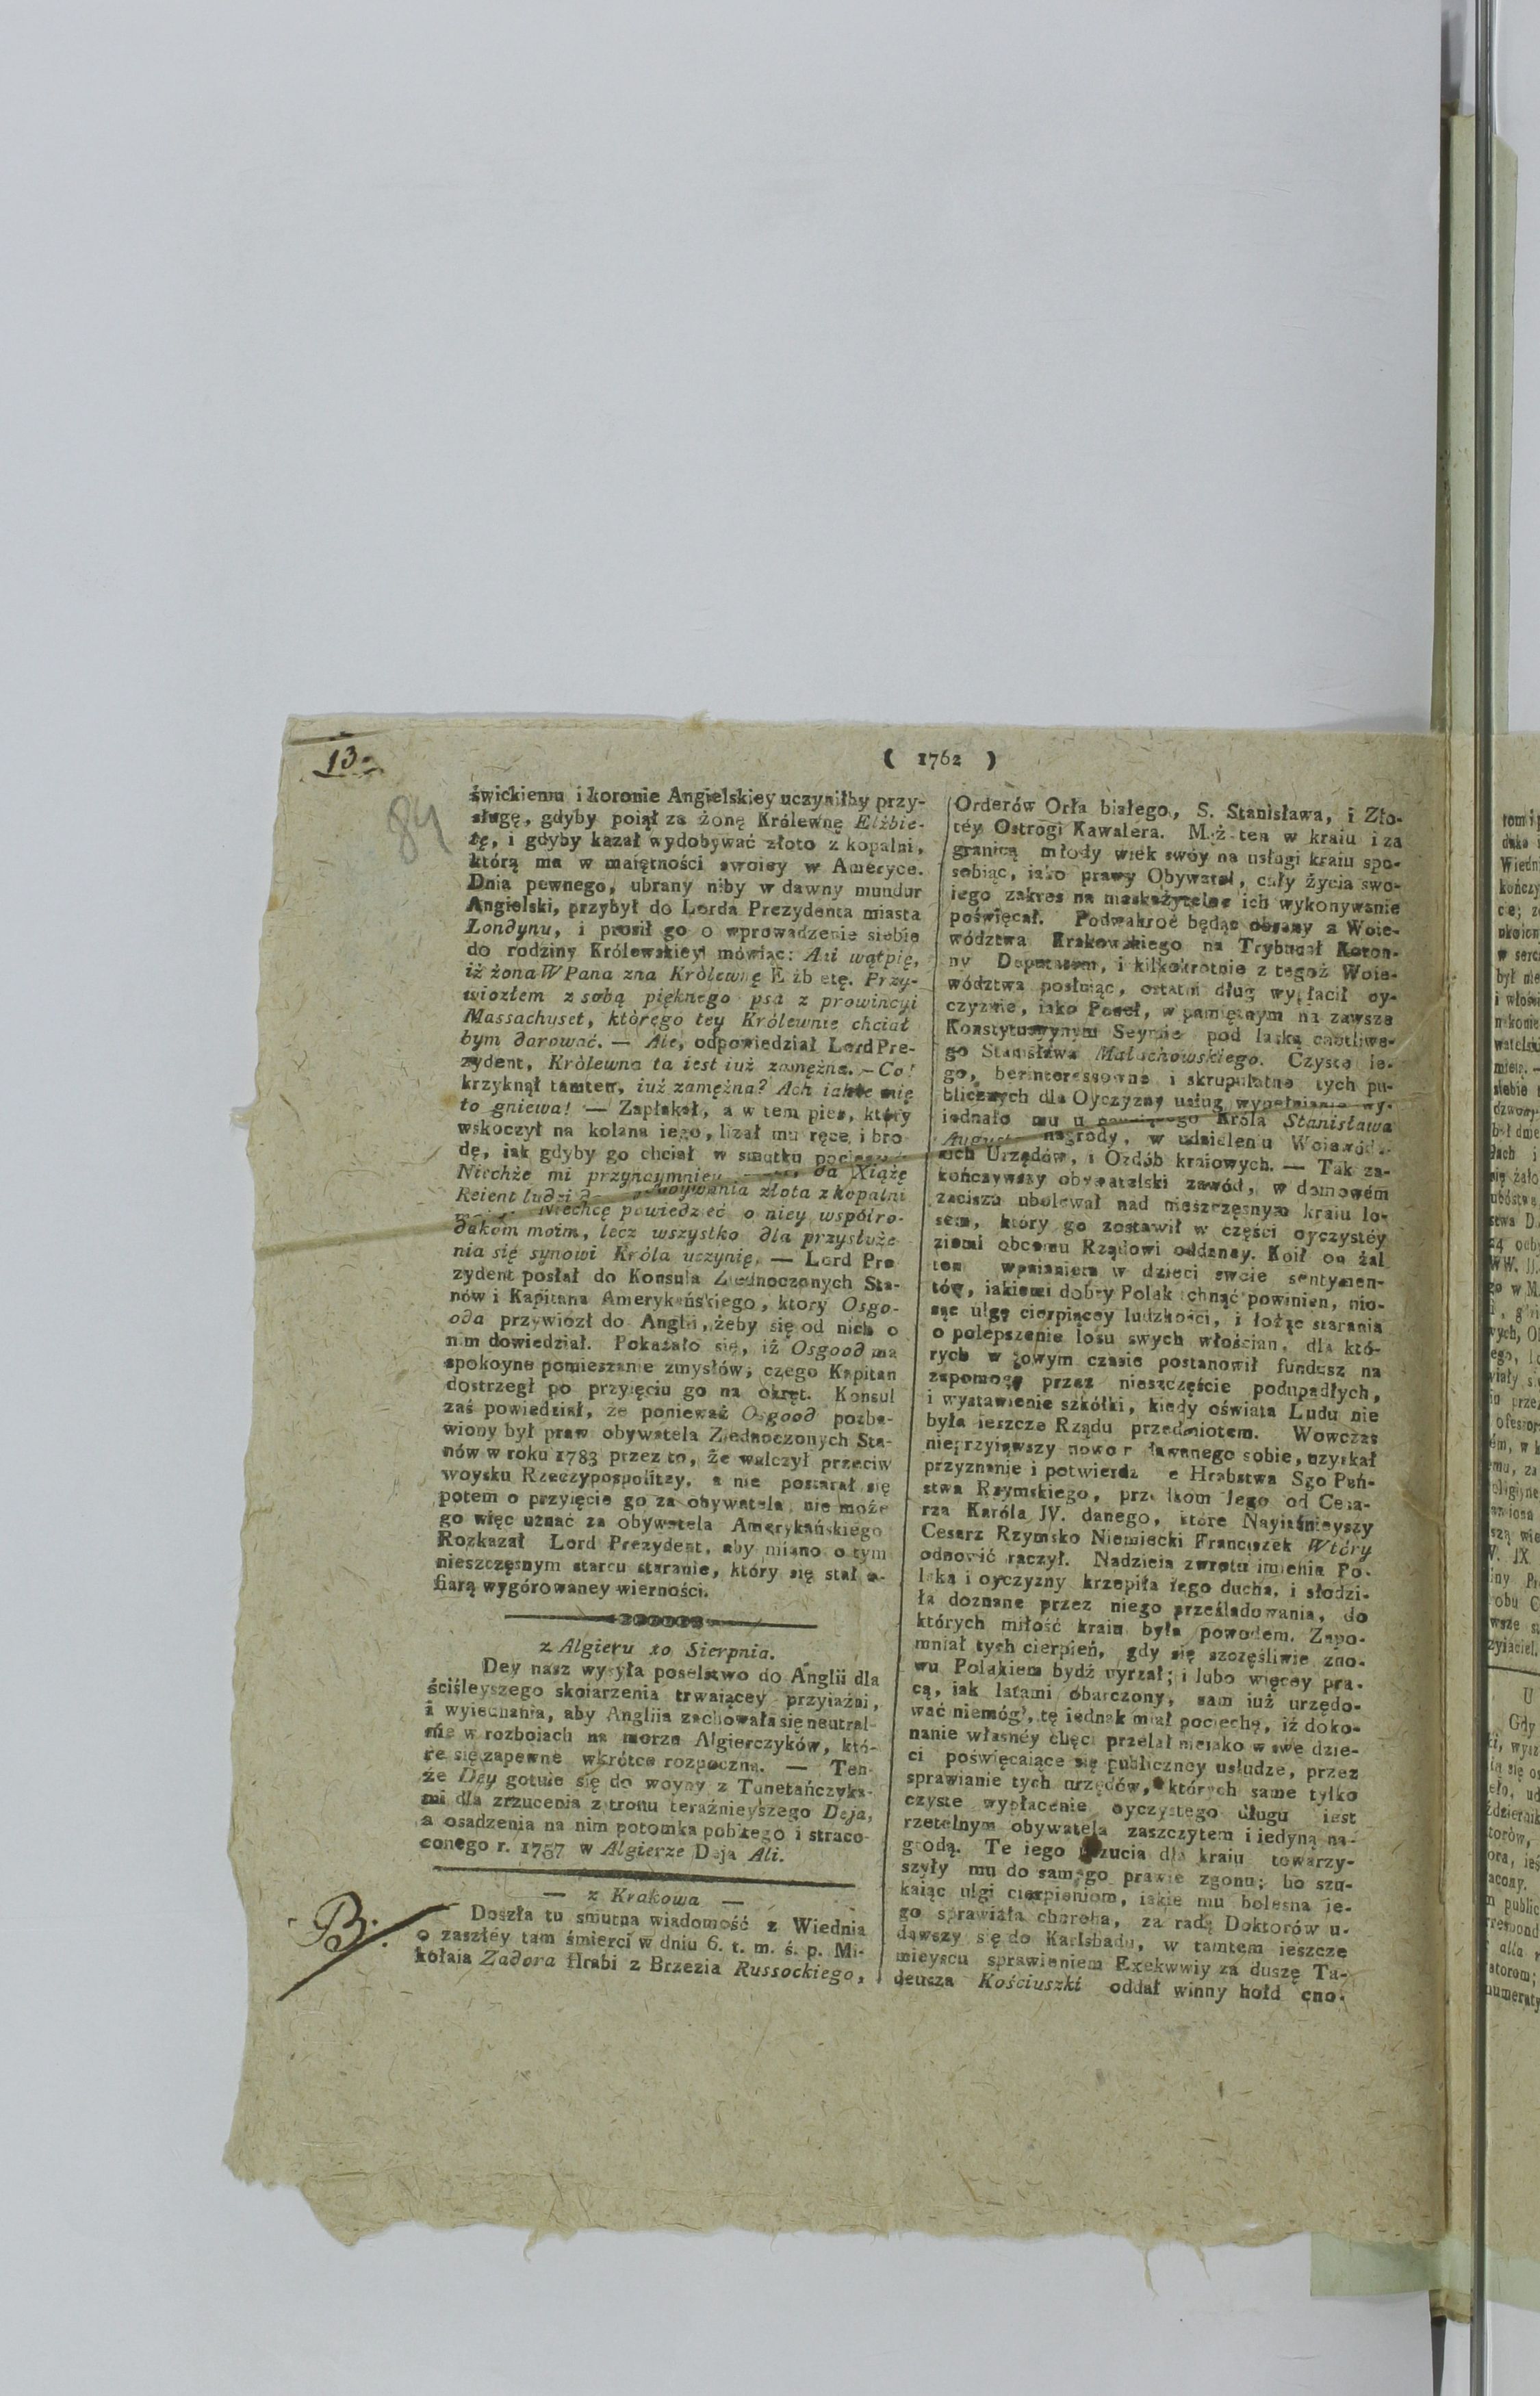 13.
84
( 1762 )
świckiemu i koronie Angielskiey uczyniłby przy-
sługę, gdyby poiął za żonę Królewnę Elżbie-
tę, i gdyby kazał wydobywać złoto z kopalni,
którą ma w maiętności swoiey w Ameryce.
Dnia pewnego, ubrany niby w dawny mundur
Angielski, przybył do Lorda Prezydenta miasta
Londynu, i prosił go o wprowadzenie siebie
do rodziny Królewskiey mówiąc: Ani wątpię,
iż żona WPana zna Królewnę Elżbietę. Przy-
wiozłem z sobą pięknego psa z prowincyi
Massachuset, którego tey Królewnie chciał
bym darować. — Ale, odpowiedział Lord Pre-
zydent, Królewna ta iest iuż zamężna. — Co!
krzyknął tamten, iuż zamężna? Ach iakże mię
to gniewa! — Zapłakał, a w tem pies, który
wskoczył na kolana iego, lizał mu ręce i bro
dę, iak gdyby go chciał w smutku
Niechże mi przynaymniey da Xiążę
Reient ludzi złota z kopalni
Niechcę powiedzieć o niey współro-
dakom moim, lecz wszystko dla przysłuże-
nia się synowi Króla uczynię. — Lord Pre
zydent posłał do Konsula Ziednoczonych Sta-
nów i Kapitana Amerykańskiego, ktory Osgo-
oda przywiózł do Anglii, żeby się od nich o
nim dowiedział. Pokazało się, iż Osgood ma
spokoyne pomieszanie zmysłów, czego Kapitan
dostrzegł po przyięciu go na okręt. Konsul
zaś powiedział, że ponieważ Osgood pozba-
wiony był praw obywatela Ziednoczonych Sta-
nów w roku 1783 przez to, że walczył przeciw
woysku Rzeczypospolitey, a nie postarał się
potem o przyięcie go za obywatela, nie może
go więc uznać za obywatela Amerykańskiego
Rozkazał Lord Prezydent, aby miano o tym
nieszczęsnym starcu staranie, który się stał o-
fiarą wygórowaney wierności.
z Algieru 10 Sierpnia.
Dey nasz wysyła poselstwo do Anglii dla
ściśleyszego skoiarzenia trwaiącey przyiaźni,
i wyiednania, aby Angliia zachowała się neutral-
nie w rozboiach na morze Algierczyków, któ-
re się zapewne wkrótce rozpoczną. — Ten-
że Dey gotuie się do woyny z Tunetańczyka-
mi dla zrzucenia z tronu teraźnieyszego Deja,
a osadzenia na nim potomka pobitego i straco-
conego r. 1757 w Algierze Deja Ali.
— z Krakowa —
B.
Doszła tu smutna wiadomość z Wiednia
o zaszłéy tam śmierci w dniu 6. t. m. ś. p. Mi-
kołaia Zadora Hrabi z Brzezia Russockiego,
Orderów Orła białego, S. Stanisława, i Zło-
téy Ostrogi Kawalera. Mąż ten w kraiu i za
granicą młody wiek swóy na usługi kraiu spo-
sobiąc, iako prawy Obywatel, cały życia swo-
iego zakres na nieskażytelne ich wykonywanie
poświęcał. Podwakroć będąc obrany z Woie-
wództwa Krakowskiego na Trybunał Koron-
ny Deputatem, i kilkokrotnie z tegoż Woie-
wództwa posłuiąc, ostatni dług wypłacił oy-
czyznie, iako Poseł, w pamiętnym na zawsze
Konstytucyynym Seymie pod laską cnotliwe-
go Stanisława Małachowskiego. Czyste Ie-
go, bezinteressowne i skrupulatne tych pu-
blicznych dla Oyczyzny usług wypełnianie wy-
iednało mu u Króla Stanisława
Augusta nagrody, w udzieleniu Woiewódz-
kich Urzędów, i Ozdób kraiowych. — Tak za-
kończywszy obywatelski zawód, w domowém
zaciszu ubolewał nad nieszczęsnym kraiu lo-
sem, który go zostawił w części oyczystéy
ziemi obcemu Rządowi oddaney. Koił on żal
ten wpaianiem w dzieci swoie sentymen-
tów, iakiemi dobry Polak tchnąć powinien, nio-
sąc ulgę cierpiącey ludzkości, i łożąc starania
o polepszenie losu swych włościan, dla któ-
rych w owym czasie postanowił fundusz na
zapomogę przez nieszczęście podupadłych,
i wystawienie szkółki, kiedy oświata Ludu nie
była ieszcze Rządu przedmiotem. Wowczas
nieprzyiąwszy nowo dawanego sobie, uzyskał
przyznanie i potwierdzenie Hrabstwa Sgo Pań-
stwa Rzymskiego, przodkom Jego od Cesa-
rza Karóla IV. danego, które Nayiaśnieyszy
Cesarz Rzymsko Niemiecki Franciszek Wtóry
odnowić raczył. Nadzieia zwrotu imienia Po-
laka i oyczyzny krzepiła iego ducha, i słodzi-
ła doznane przez niego prześladowania, do
których miłość kraiu była powodem. Zapo-
mniał tych cierpień, gdy się szczęśliwie zno-
wu Polakiem bydź uyrzał; i lubo więcey pra-
cą, iak latami obarczony, sam iuż urzędo-
wać niemógł, tę iednak miał pociechę, iż doko-
nanie własnéy chęci przelał nieiako w swe dzie-
ci poświęcaiące się publiczney usłudze, przez
sprawianie tych urzędów, których same tylko
czyste wypłacenie oyczystego długu iest
rzetelnym obywatela zaszczytem i iedyną na-
grodą. Te iego uczucia dla kraiu towarzy-
szyły mu do samego prawie zgonu; bo szu-
kaiąc ulgi cierpieniom, iakie mu bolesna ie-
go sprawiała choroba, za radą Doktorów u-
dawszy się do Karlsbadu, w tamtem ieszcze
mieyscu sprawieniem Exekwwiy za duszę Ta-
deusza Kościuszki oddał winny hołd cno-